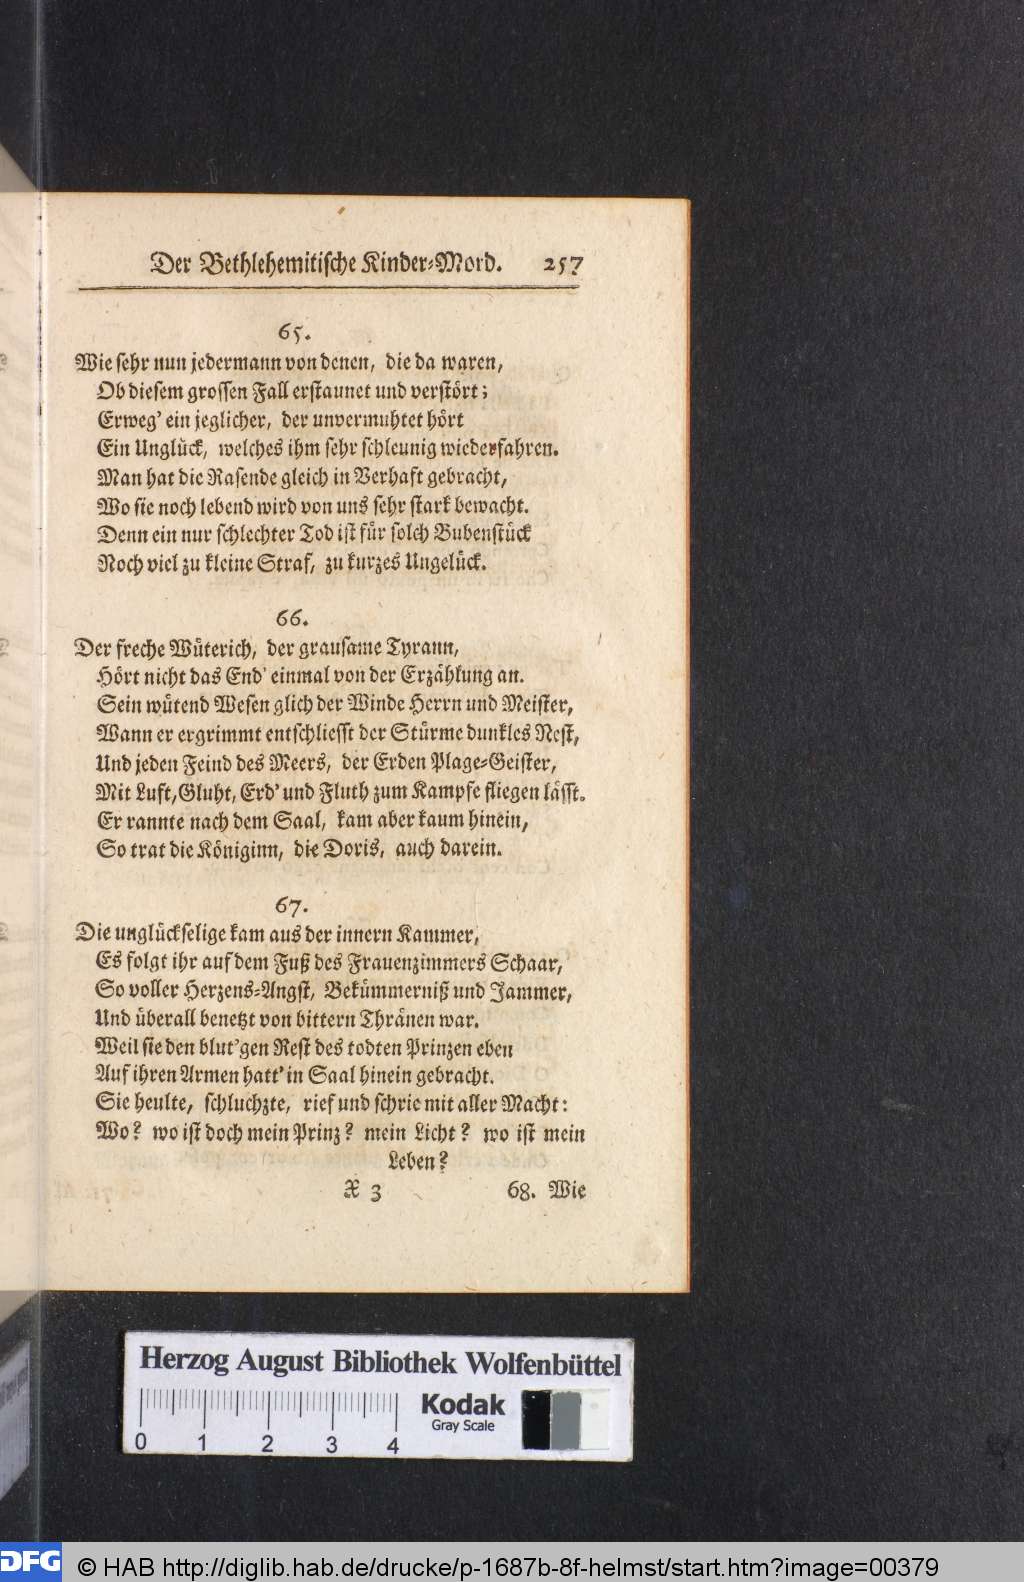 Der Bethlehemitische Kinder-Mord. 257
65.
Wie sehr nun jedermann von denen, die da waren,
Ob diesem grossen Fall erstaunet und verstört;
Erweg' ein jeglicher, der unvermuhtet hört
Ein Unglück, welches ihm sehr schleunig wiederfahren.
Man hat die Rasende gleich in Verhaft gebracht,
Wo sie noch lebend wird von uns sehr stark bewacht.
Denn ein nur schlechter Tod ist für solch Bubenstück
Noch viel zu kleine Straf, zu kurzes Ungelück.
66.
Der freche Wüterich, der grausame Tyrann,
Hört nicht das End' einmal von der Erzählung an.
Sein wütend Wesen glich der Winde Herrn und Meister,
Wann er ergrimmt entschliesst der Stürme dunkles Nest,
Und jeden Feind des Meers, der Erden Plage-Geister,
Mit Luft, Gluht, Erd' und Fluth zum Kampfe fliegen lässt.
Er rannte nach dem Saal, kam aber kaum hinein,
So trat die Königinn, die Doris, auch darein.
67.
Die unglückselige kam aus der innern Kammer,
Es folgt ihr auf dem Fuß des Frauenzimmers Schaar,
So voller Herzens-Angst, Bekümmerniß und Jammer,
Und überall benetzt von bittern Thränen war.
Weil sie den blut'gen Rest des todten Prinzen eben
Auf ihren Armen hatt' in Saal hinein gebracht.
Sie heulte, schluchzte, rief und schrie mit aller Macht:
Wo? wo ist doch mein Prinz? mein Licht? wo ist mein
Leben?
X 3 68. Wie
Herzog August Bibliothek Wolfenbüttel
Kodak
Gray Scale
0 1 2 3 4
DFG © HAB http://diglib.hab.de/drucke/p-1687b-8f-helmst/start.htm?image=00379